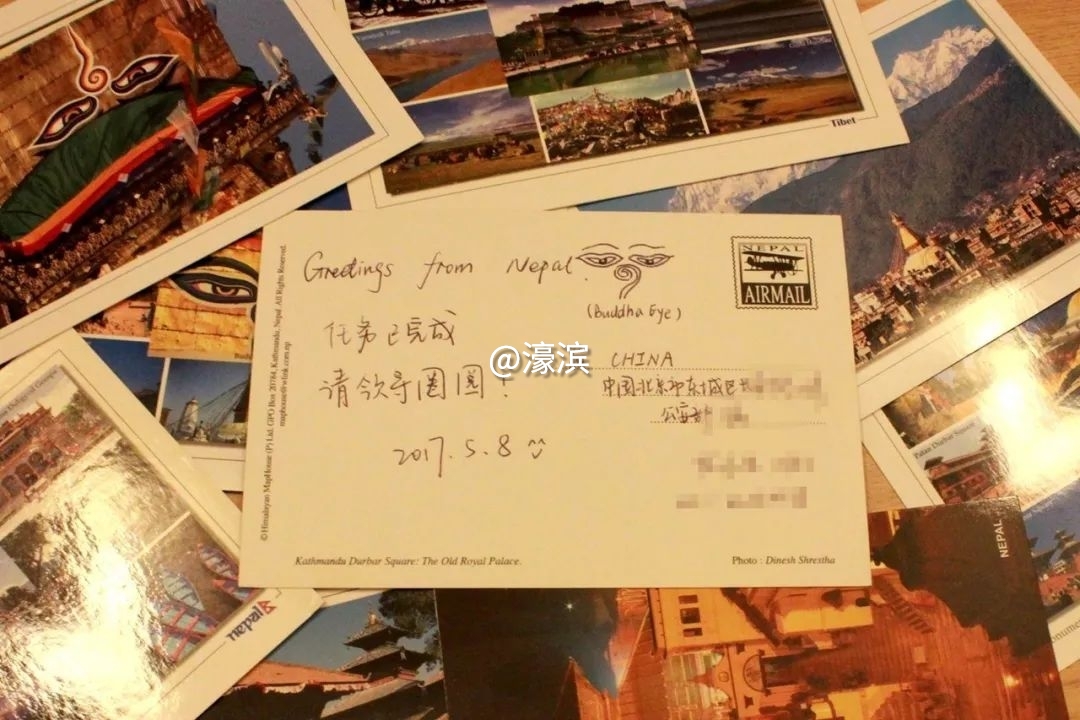 Tibet
Greetings from Nepal.
(Buddha Eye)
NEPAL
AIRMAIL
任务已完成
请领导圈圆!
2017.5.8
@濠滨
CHINA
中国北京市东城区长
公安部
© Himalayan MapHouse (P) Ltd. GPO Box 20784, Kathmandu, Nepal. All Rights Reserved.
maphouse@wlink.com.np
Kathmandu Durbar Square: The Old Royal Palace.
Photo : Dinesh Shrestha
Patan Durbar Square
NEPAL
nepal